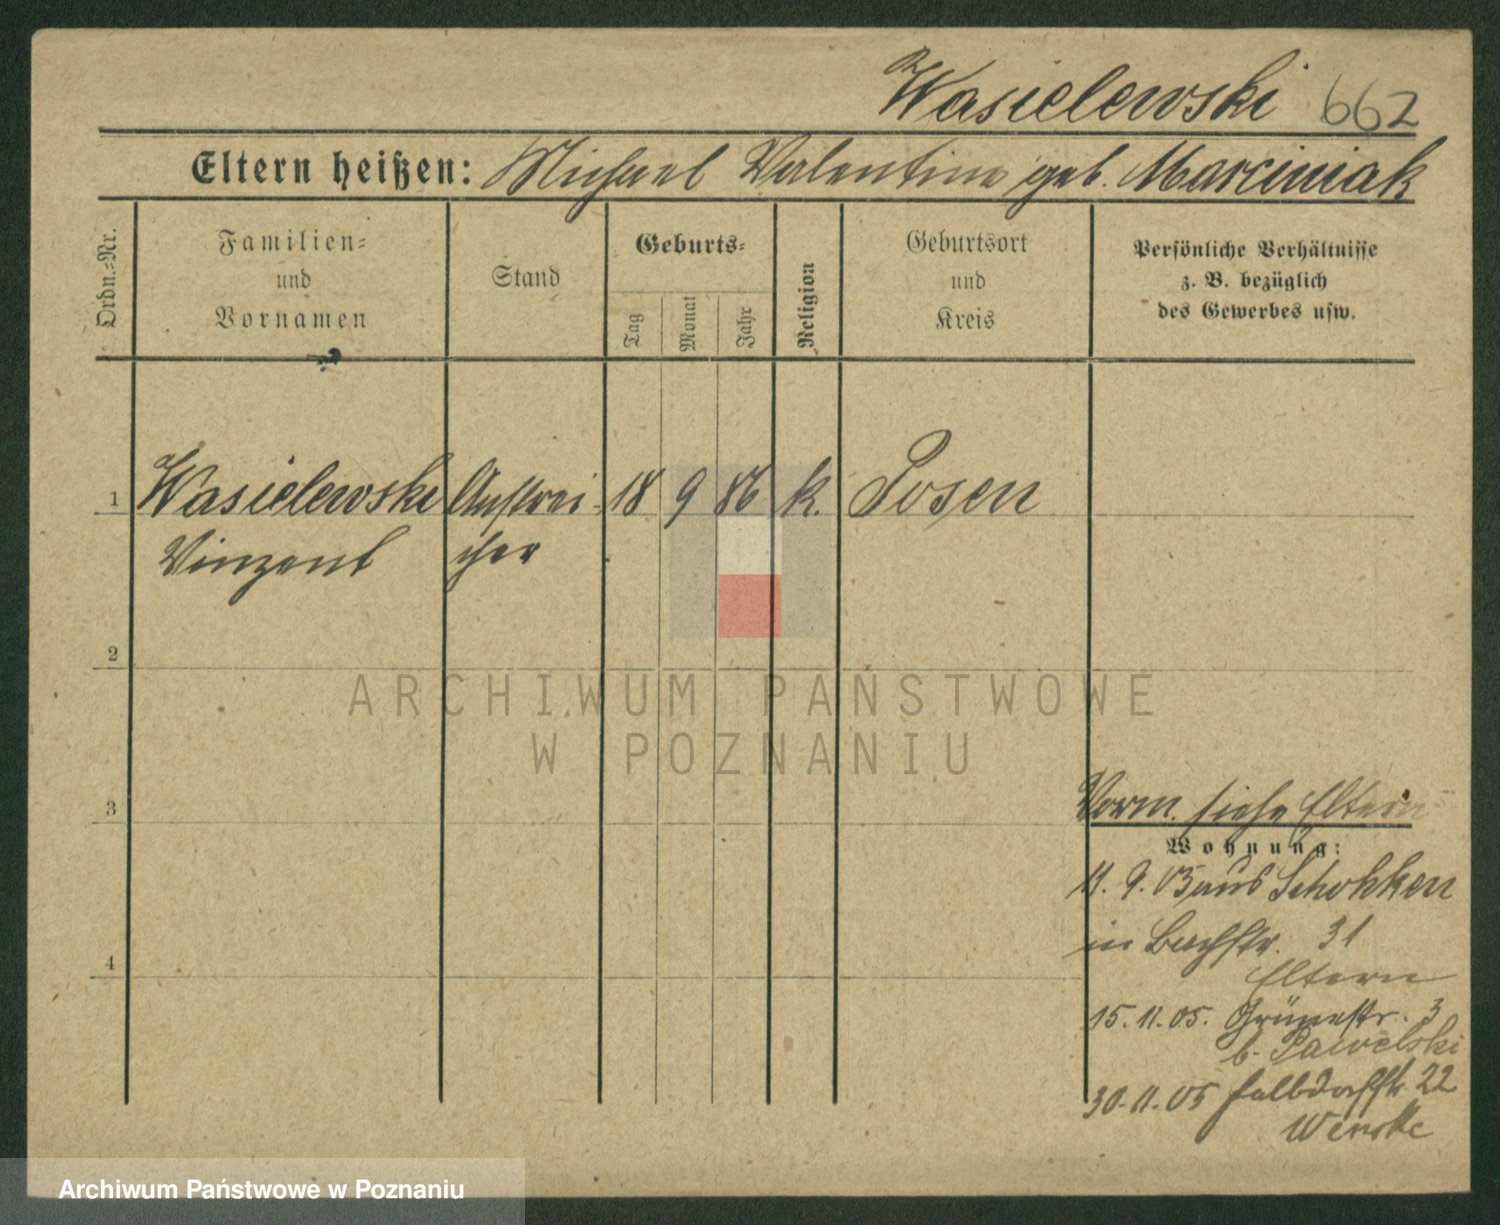 Wasielewski 662
Eltern heißen: Michael Valentine geb. Marciniak
Ordn.-Nr.
Familien-
und
Vornamen
Stand
Geburts-
Tag
Monat
Jahr
Religion
Geburtsort
und
Kreis
Persönliche Verhältnisse
z. B. bezüglich
des Gewerbes usw.
1 Wasielewski Anstrei- 18 9 86 k. Posen
Vinzent cher
2
ARCHIWUM PAŃSTWOWE
W POZNANIU
3
Vorm. siehe Eltern
Wohnung:
11. 9. 05 aus Schokken
in Bachstr. 31
Eltern
4
15. 11. 05. Grünestr. 3
b. Pawelski
30. 11. 05 Halbdorfstr. 22
Archiwum Państwowe w Poznaniu